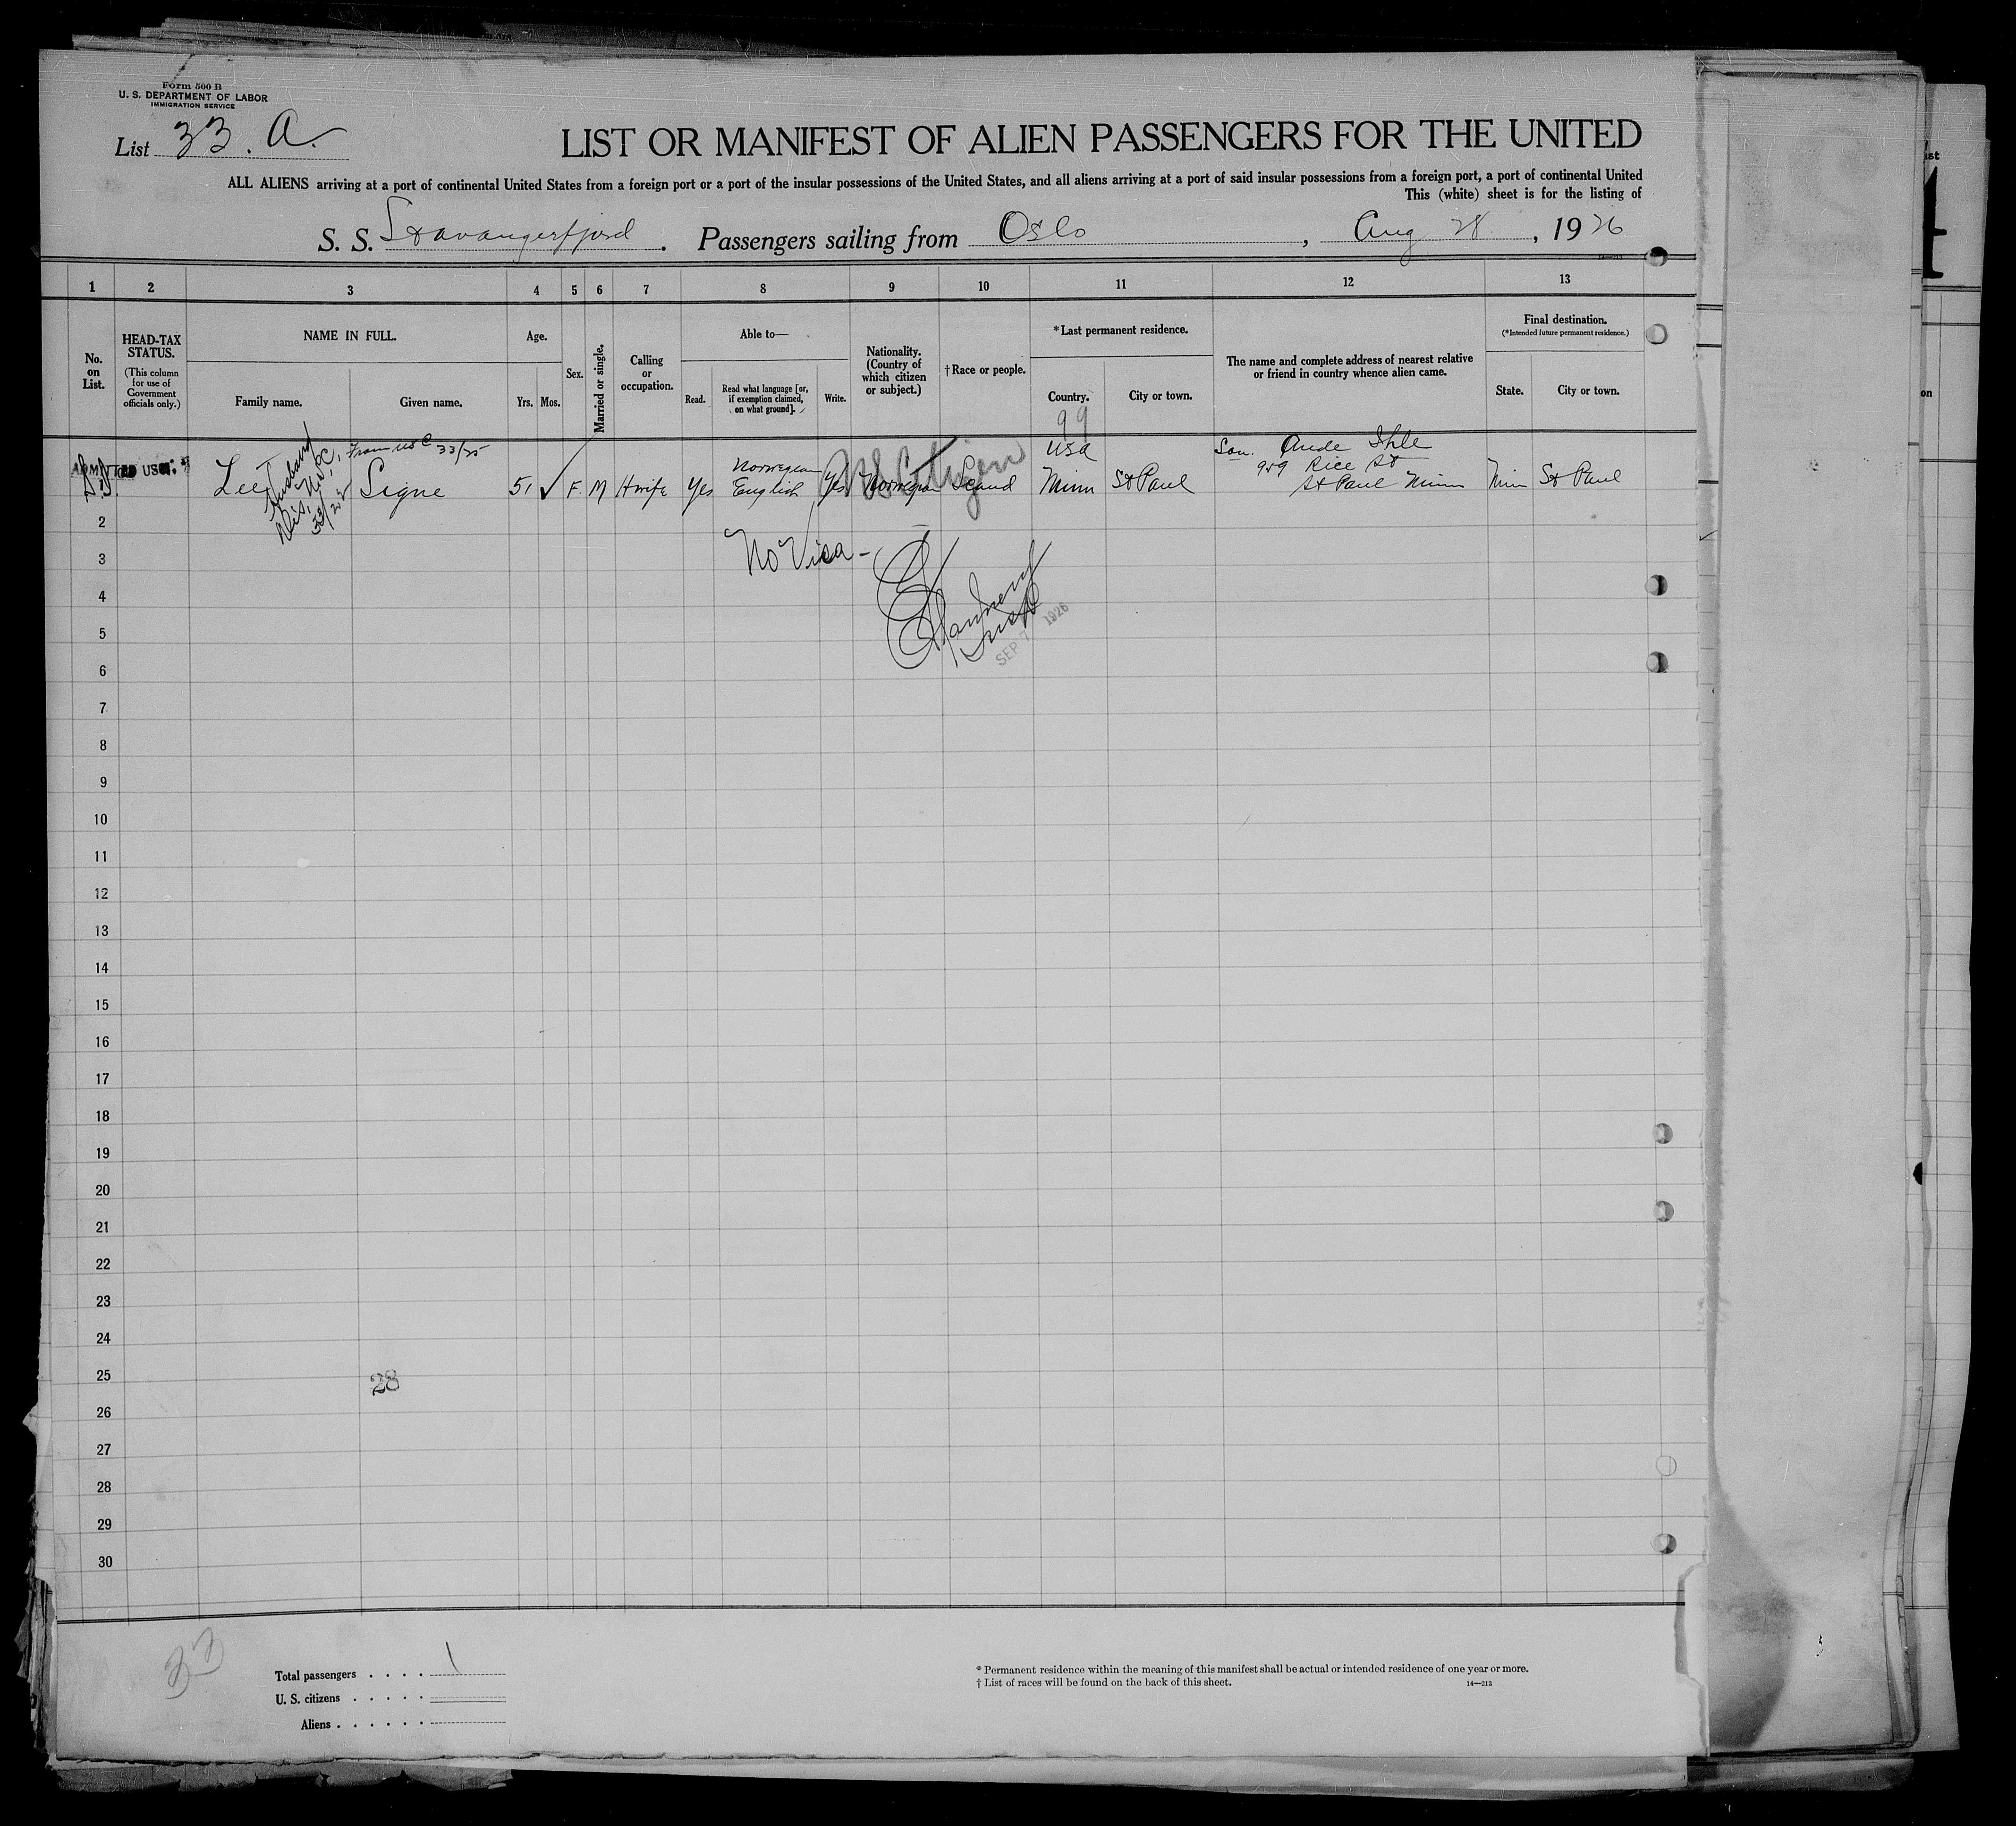 Form 500 B
U. S. DEPARTMENT OF LABOR
IMMIGRATION SERVICE
List 33. A.
LIST OR MANIFEST OF ALIEN PASSENGERS FOR THE UNITED
ALL ALIENS arriving at a port of continental United States from a foreign port or a port of the insular possessions of the United States, and all aliens arriving at a port of said insular possessions from a foreign port, a port of continental United
This (white) sheet is for the listing of
S. S. Stavangerfjord. Passengers sailing from Oslo, Aug 28, 1926
1 2 3 4 5 6 7 8 9 10 11 12 13
No. on List.
HEAD-TAX STATUS.
(This column for use of Government officials only.)
NAME IN FULL.
Family name. Given name.
Age.
Yrs. Mos.
Sex.
Married or single.
Calling or occupation.
Able to—
Read. Read what language [or, if exemption claimed, on what ground]. Write.
Nationality. (Country of which citizen or subject.)
†Race or people.
*Last permanent residence.
Country. City or town.
The name and complete address of nearest relative or friend in country whence alien came.
Final destination.
(*Intended future permanent residence.)
State. City or town.
99
ADMITTED
Husband
33/25
From USC 33/25
Lee Signe 51 F. M Hwife Yes Norwegian English Yes Norwegian Scand USA Minn St Paul Son. Aude Ihle 959 Rice St St Paul Minn Minn St Paul
US Citizen
2
No Visa -
3
4
5
Insp
SEP 7 1926
6
7
8
9
10
11
12
13
14
15
16
17
18
19
20
21
22
23
24
25
28
26
27
28
29
30
33
Total passengers . . . . 1
U. S. citizens . . . . .
Aliens . . . . . .
* Permanent residence within the meaning of this manifest shall be actual or intended residence of one year or more.
† List of races will be found on the back of this sheet. 14—213